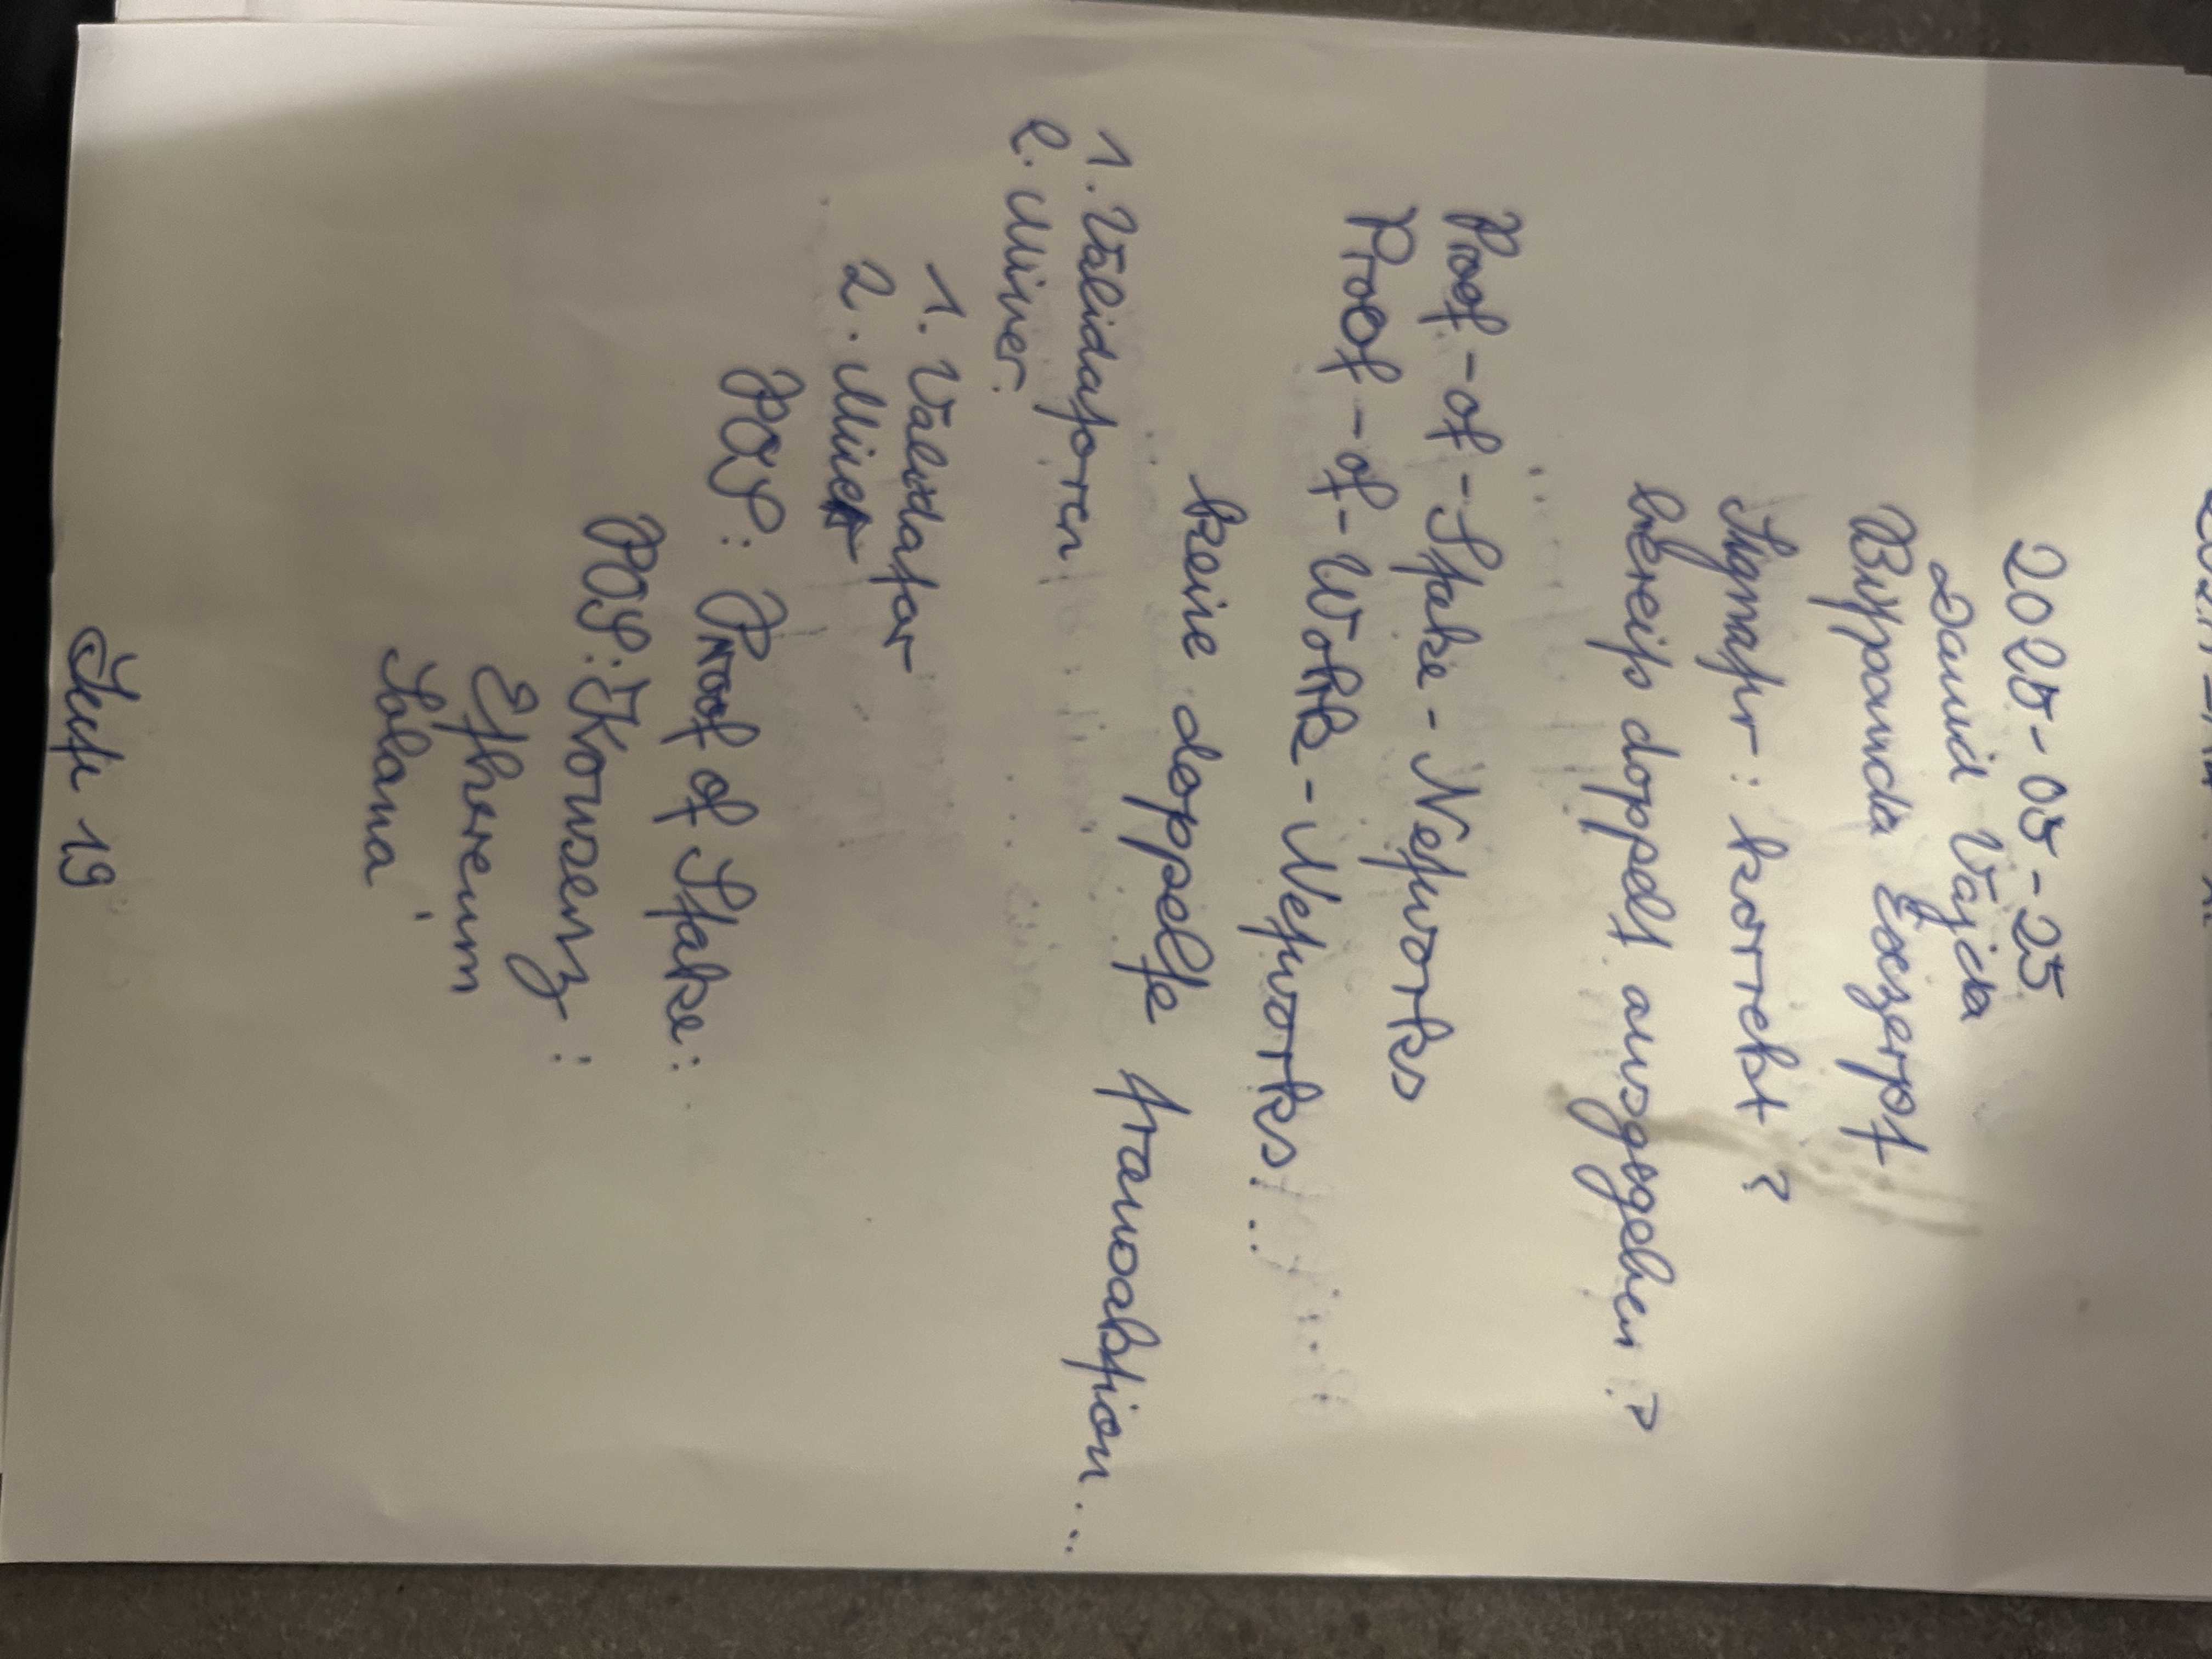 2025-05-25
David Vajda
Bitpanda Exzerpt
Signatur: korrekt?
bereits doppelt ausgegeben?
Proof-of-Stake-Networks
Proof-of-Work-Networks...
keine doppelte transaktion...
1. Validatoren
2. Miner.
1. Validator
2. Miner
POS: Proof of Stake:
POS: Konsenz:
Ethereum
Solana
Seite 19